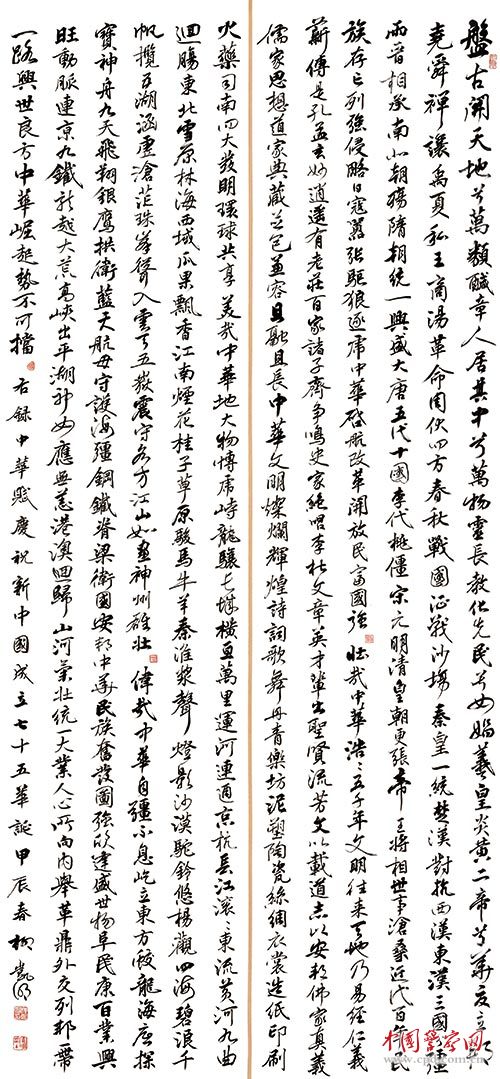 盤古開天地兮萬類鹹章人居其中兮萬物靈長教化先民兮女媧羲皇炎黃二帝兮華夏立邦
堯舜禪讓禹夏私王商湯革命周伏四方春秋戰國征戰沙場秦皇一統楚漢對抗西漢東漢三國爭強
兩晉相承南北朝殤隋朝統一興盛大唐五代十國李代桃僵宋元明清皇朝更張帝王將相世事滄桑近代百年民
族存亡列強侵略日寇囂張驅狼逐虎中華啟航改革開放民富國強壯哉中華浩浩五千年文明往來天地乃易經仁義
薪傳是孔孟玄妙逍遙有老莊百家諸子齊爭鳴史家絕唱李杜文章英才輩出聖賢流芳文以載道志以安邦佛家真義
儒家思想道家典藏兼容且融且長中華文明燦爛輝煌詩詞歌舞丹青樂坊泥塑陶瓷絲綢衣裳造紙印刷
火藥司南四大發明環球共享美哉中華地大物博虎峙龍驤長城橫亙萬里運河連通京杭長江滾滾東流黃河九曲
迴腸東北雪原林海西域瓜果飄香江南煙花桂子草原駿馬牛羊秦淮槳聲燈影沙漠駝鈴悠揚觀四海碧浪千
帆攬五湖涵虛滄茫珠峯聳入雲天五嶽震守各方江山如畫神州雄壯偉哉中華自彊不息屹立東方蛟龍海底探
寶神舟九天飛翔銀鷹拱衛藍天航母守護海疆鋼鐵脊梁衛國安邦中華民族奮發圖強欣逢盛世物阜民康百業興
旺動脈連京九鐵龍越大荒高峽出平湖神女應無恙港澳迴歸山河榮壯統一大業人心所向內舉革鼎外交列邦一帶
一路興世良方中華崛起勢不可擋右錄中華賦慶祝新中國成立七十五華誕甲辰春柳凱
中國警察网
www.cpd.com.cn